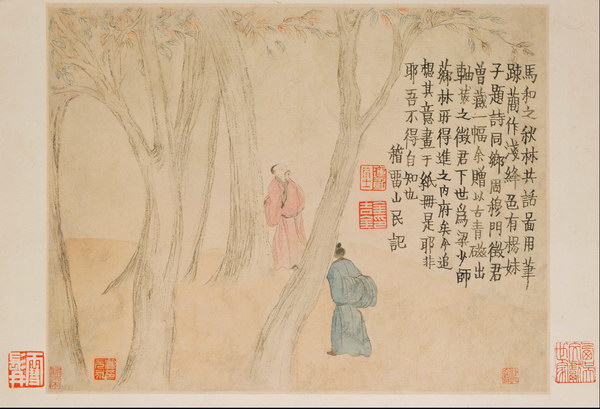 馬和之秋林共話啚用筆
踈簡作淺絳色有楊妹
子題詩同鄉周穆門徵君
曾藏一幅余贈以古青磁出
軸裝之徵君下世爲梁少師
薌林所得進之内府矣今追
想其意畫于紙冊是耶非
耶吾不得自知也
稽畱山民記